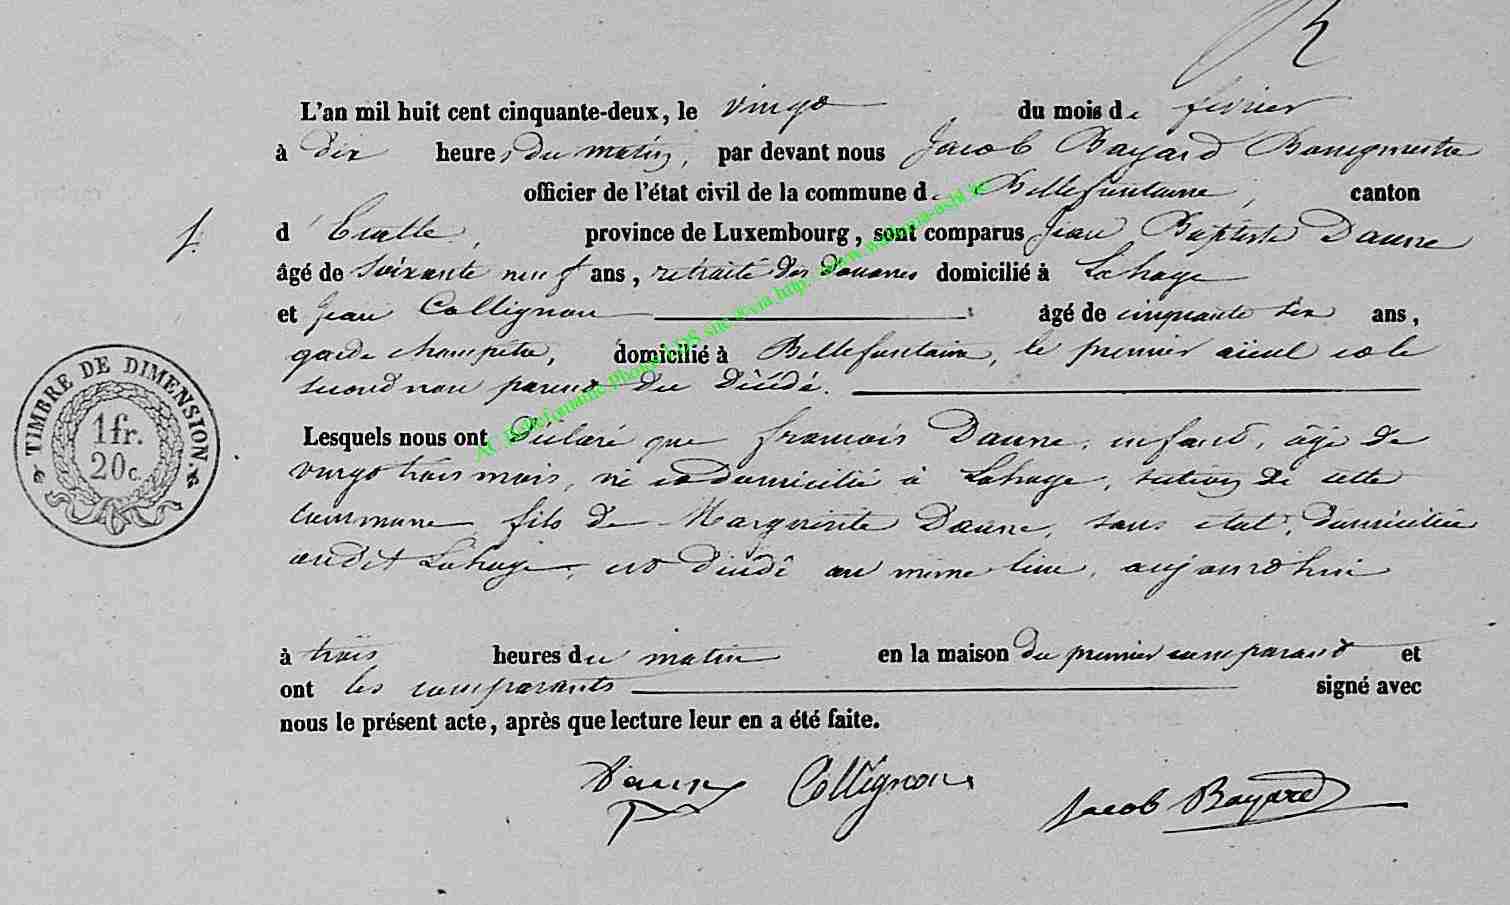 L'an mil huit cent cinquante-deux, le vingt du mois de février
à dix heures du matin, par devant nous Jacob Bayard Bourgmestre
officier de l'état civil de la commune de Bellefontaine, canton
d'Etalle, province de Luxembourg, sont comparus Jean Baptiste Daune
âgé de soixante neuf ans, retraité des douanes domicilié à Lahage
et Jean Collignon âgé de cinquante six ans,
garde champêtre, domicilié à Bellefontaine, le premier aïeul et le
second non parent du Décédé.
TIMBRE DE DIMENSION.
1 fr.
20 c.
Lesquels nous ont Déclaré que françois Daune, enfant, âgé de
vingt trois mois, né et domicilié à Lahage, section de cette
commune, fils de Marguerite Daune, sans état, domiciliée
audit Lahage, est décédé au même lieu, aujourd'hui
à trois heures du matin en la maison du premier comparant et
ont les comparants signé avec
nous le présent acte, après que lecture leur en a été faite.
Daune Collignon Jacob Bayard